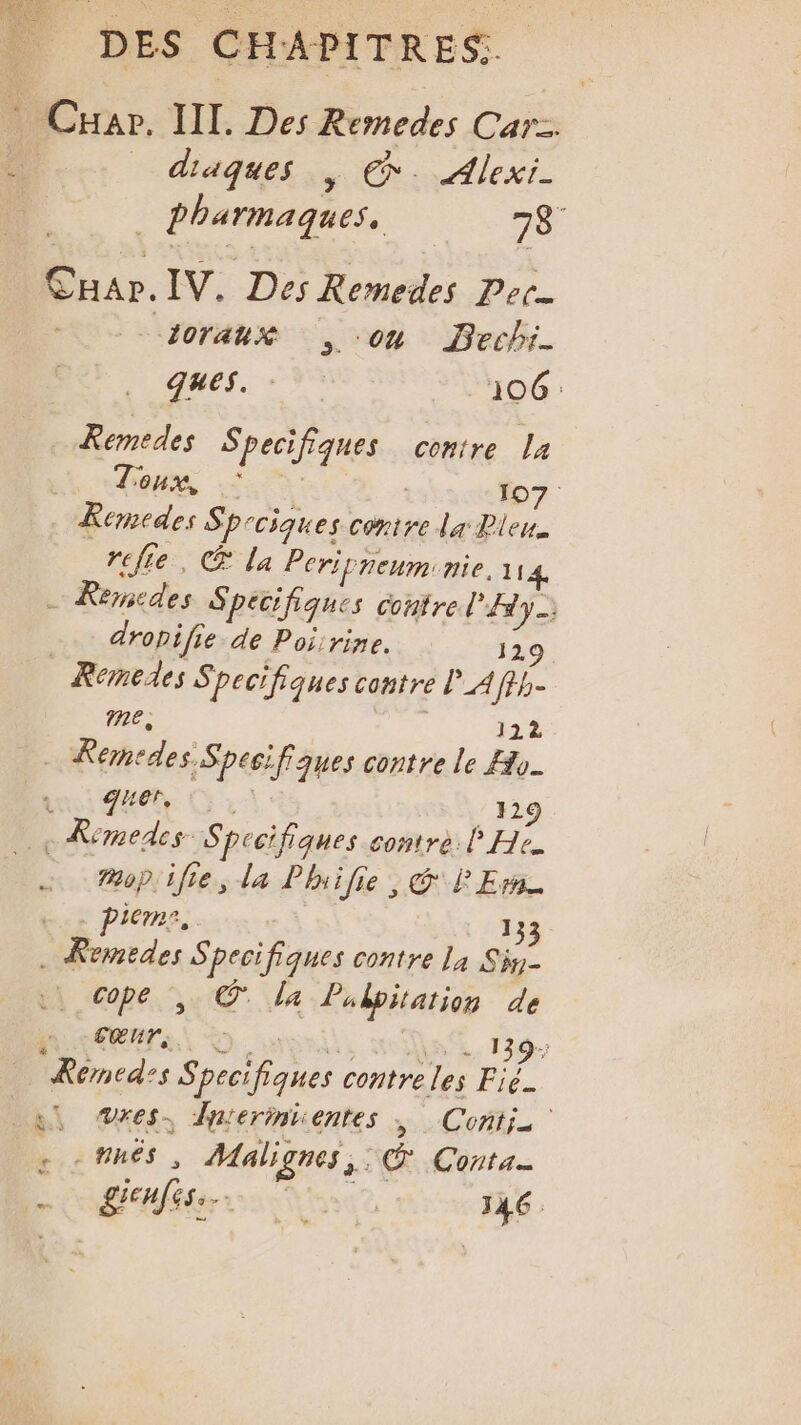 DES CHAPITRES.
CHAP. III. Des Remedes Car-
diaques , & Alexi-
pharmaques. 78
CHAP. IV. Des Remedes Pec-
toraux , ou Bechi-
ques. 106
Remedes Specifiques contre la
Toux, 107
Remedes Speciques contre la Pleu-
resie , & la Peripneumonie, 114
Remedes Specifiques contre l'Hy-
dropisie de Poitrine. 129
Remedes Specifiques contre l'Asth-
me, 122
Remedes Specifiques contre le Ho-
quet, 129
Remedes Specifiques contre l'He-
mop isie, la Phtisie , & l'Em-
pieme, 133
Remedes Specifiques contre la Sin-
cope , & la Palpitation de
cœur, 139
Remedes Specifiques contre les Fié-
vres, Intermittentes , Conti-
nuës , Malignes, & Conta-
gieuses. 146